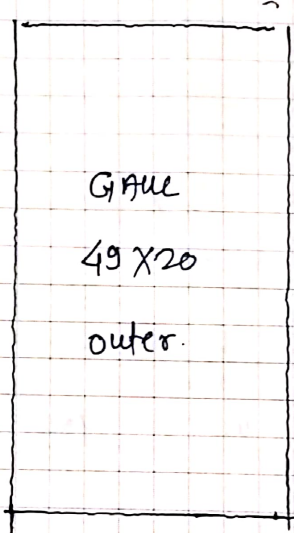 GAUE
49 X 20
outer.